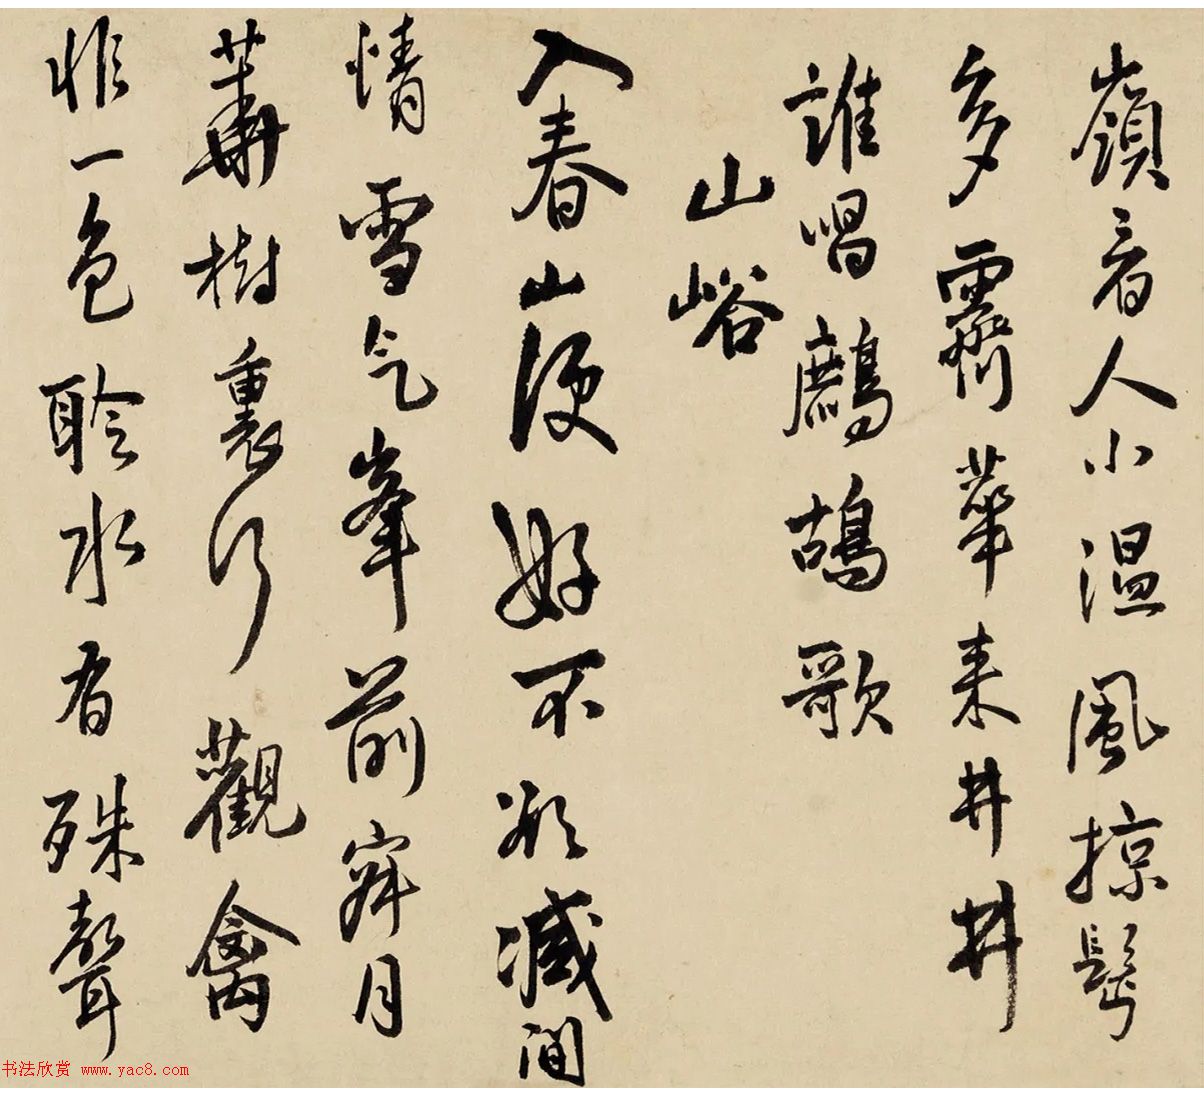 嶺看人小溫風掠鬢
多霽華來冉冉
誰唱鷓鴣歌
山峪
入春山便好不欲減間
情雪气峯前月
華樹裏行觀禽
惟一色聆水有殊聲
书法欣赏 www.yac8.com